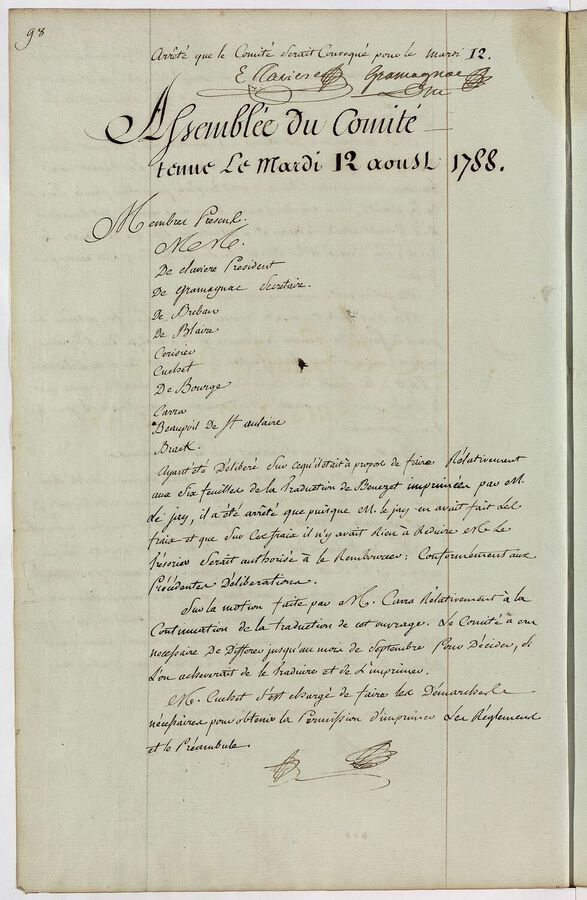 98
Arrêté que le Comité Serait Convoqué pour le mardi 12.
E Claviere Gramagnac
Assemblée Du Comité
tenue Le Mardi 12 aoust 1788.
Membres Present.
MM.
De claviere President
De Gramagnac Secretaire.
De Breban
De Blaire
Cerisier
Cuchet
De Bourge
Carra
Beaupoil De St aulaire
Brack.
Ayant été Déliberé Sur cequ'il était à propos de faire Rélativement
aux Six feuilles de la traduction de Benezet imprimées par M.
le jay, il a été arrêté que puisque M. le jay en avait fait Les
fraix et que Sur Ces fraix il n'y avait Rien à Reduire M. Le
Trésorier Serait authorisé à le Rembourser; Conformement aux
Précédentes Déliberations.
Sur la motion faite par M. Carra Rélativement à la
Continuation de la traduction de cet ouvrage. Le Comité a cru
necessaire De Differer jusqu'au mois de Septembre Pour Décider, Si
L'on acheverait de le traduire et de L'imprimer.
M. Cuchet S'est chargé de faire les Démarches
nécessaires pour obtenir la Permission d'imprimer Les Réglemens
et le Préambule.